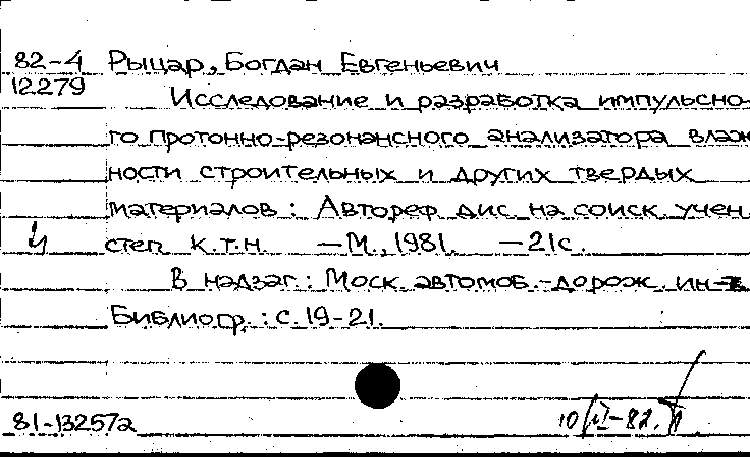 82-4 Рыцар, Богдан Евгеньевич
12279 Исследование и разработка импульсно-
го протонно-резонансного анализатора влаж
ности строительных и других твердых
материалов : Автореф. дис. на соиск. учен.
степ. к.т.н. — М., 1981. — 21с.
В надзаг.: Моск. автомоб.-дорож. ин-т
Библиогр.: с. 19-21.
81-13257а